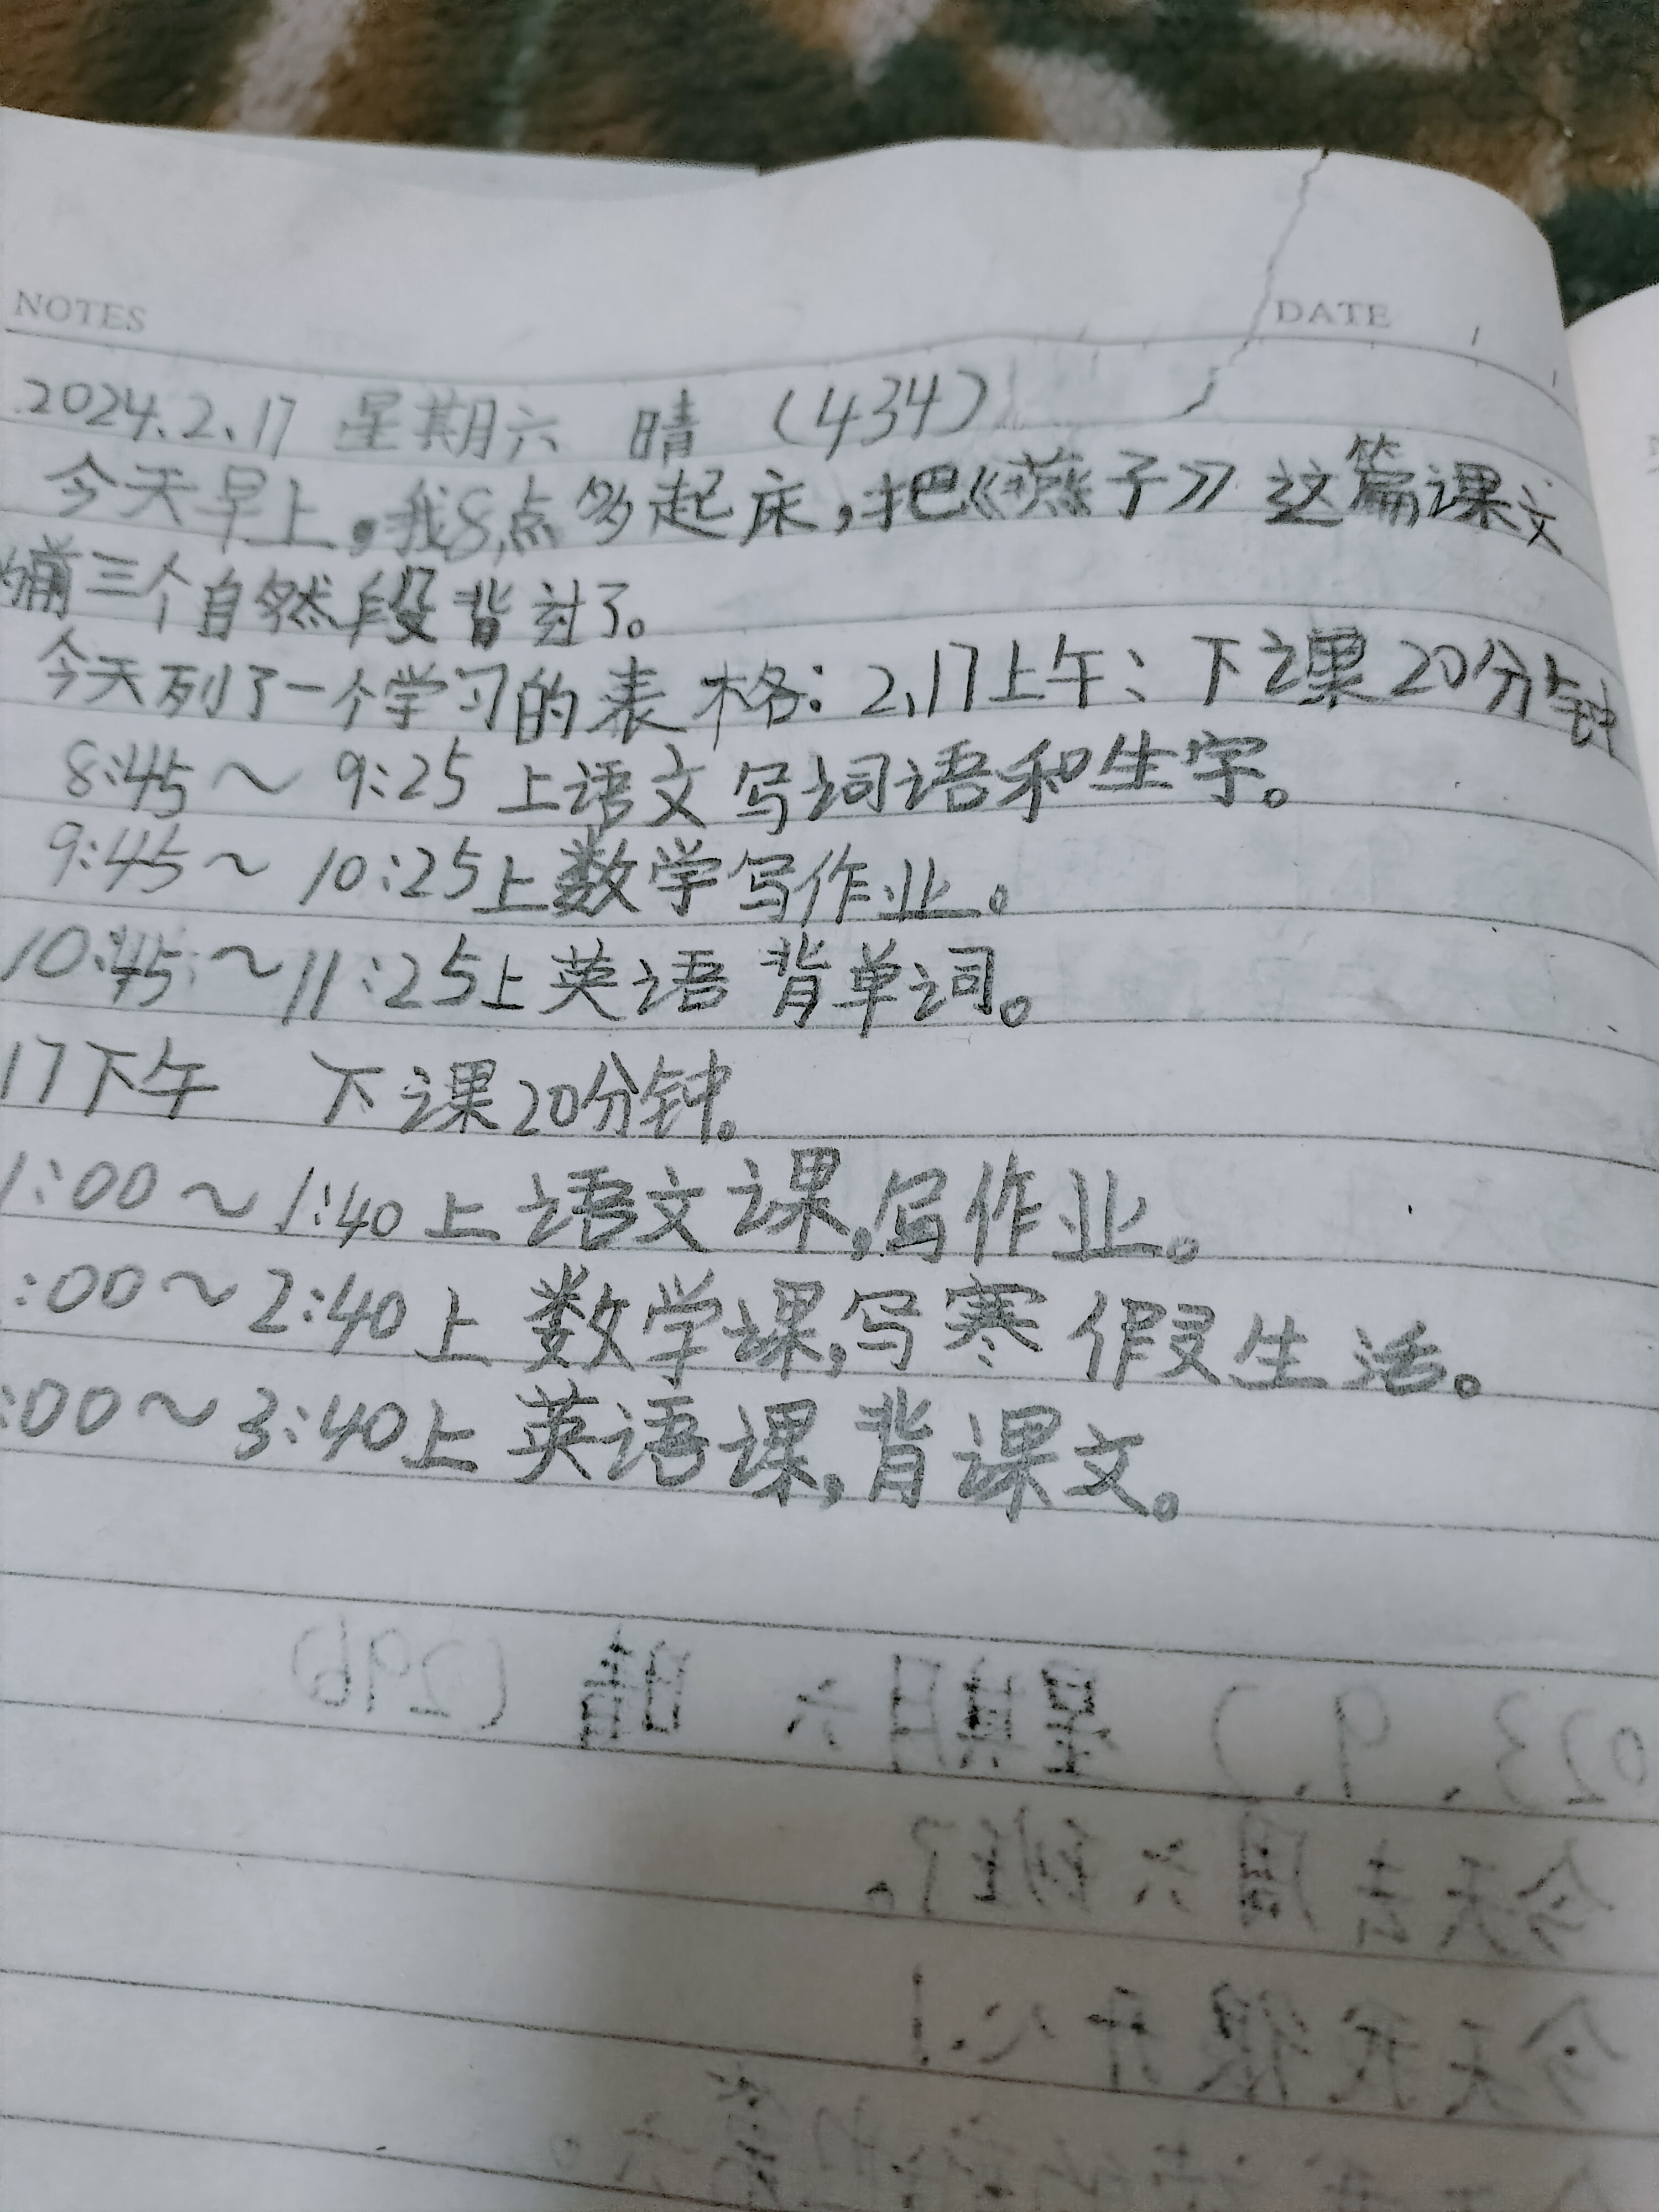 NOTES
DATE
2024.2.17 星期六 晴 (434)
今天早上,我8点多起床,把《燕子》这篇课文
前三个自然段背过了。
今天列了一个学习的表格:2.17上午:下课20分钟
8:45~9:25上语文写词语和生字。
9:45~10:25上数学写作业。
10:45~11:25上英语 背单词。
17下午 下课20分钟。
1:00~1:40上语文课,写作业。
:00~2:40上数学课,写寒假生活。
:00~3:40上英语课,背课文。